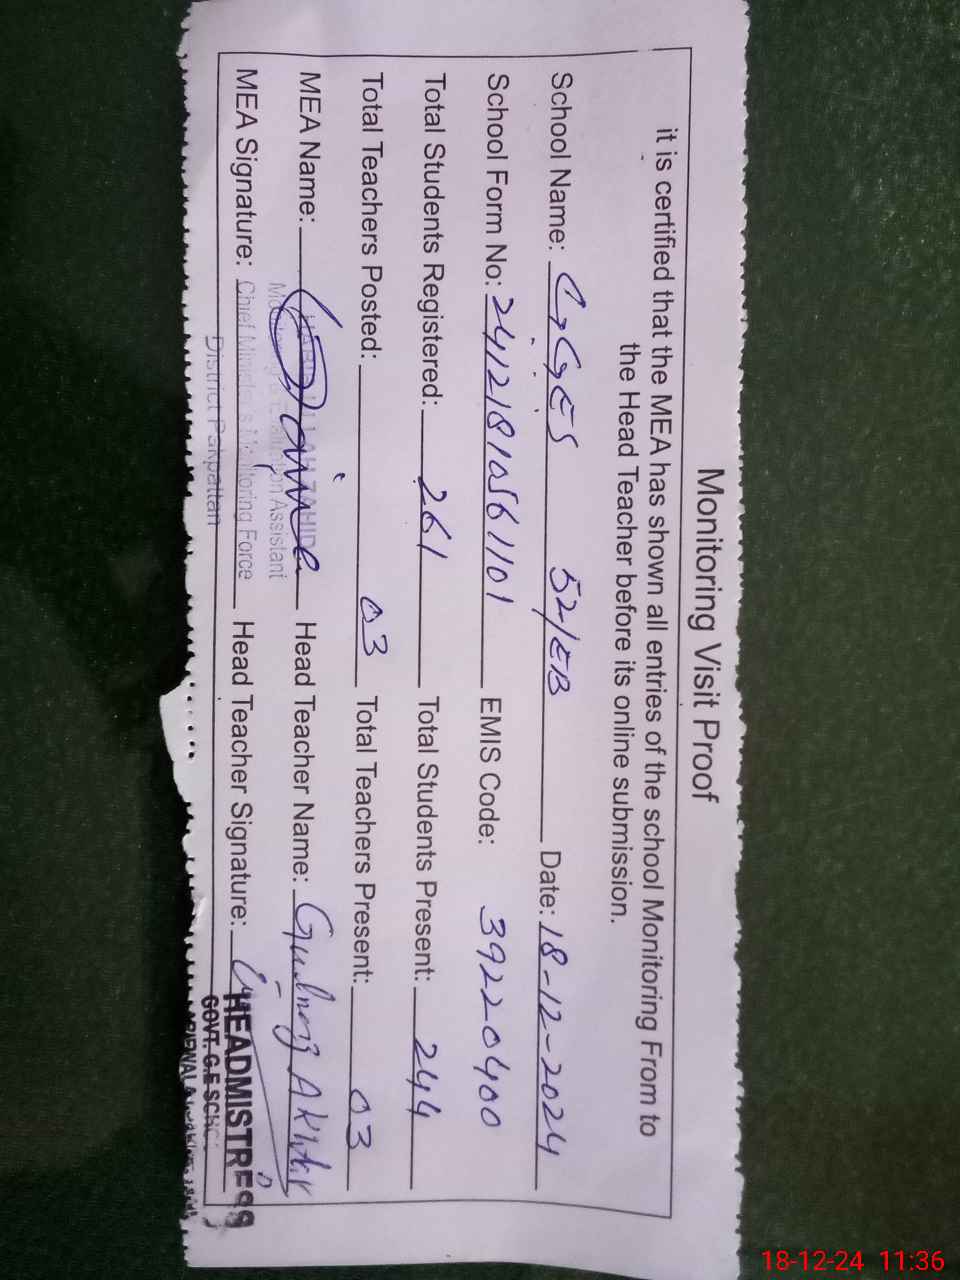 Monitoring Visit Proof
it is certified that the MEA has shown all entries of the school Monitoring From to
the Head Teacher before its online submission.
School Name: GGES 52/EB Date: 18-12-2024
School Form No: 24121810561101 EMIS Code: 39220400
Total Students Registered: 261 Total Students Present: 244
Total Teachers Posted: 03 Total Teachers Present: 03
MEA Name: Head Teacher Name: Gulnaz Akhtar
Monitoring & Evaluation Assistant
MEA Signature: Chief Minister's Monitoring Force Head Teacher Signature:
District Pakpattan
HEADMISTRESS
GOVT. G.E SCHOOL
18-12-24 11:36